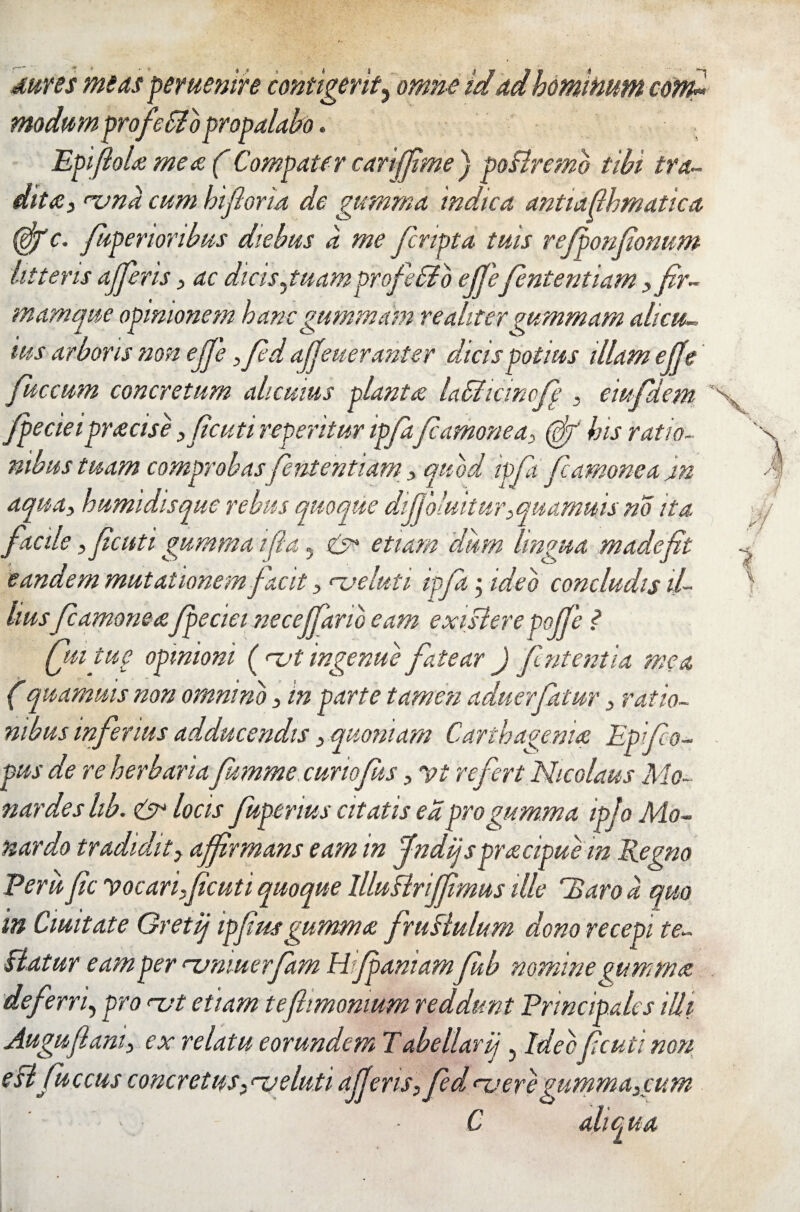 aures meas peruenire contigerit, omne id ad hominum com-
modum profecto propalabo.
Epistolæ meæ (Compater carissime) postremò tibi tra-
ditæ, vnà cum historia de gumma indica antiasthmatica
&c. superioribus diebus à me scripta tuis responsionum
litteris asseris, ac dicis, tuam profectò esse sententiam, fir-
mamque opinionem hanc gummam realiter gummam alicu-
ius arboris non esse, sed asseueranter dicis potius illam esse
succum concretum alicuius plantæ lacticinosę, eiusdem
speciei præcisè, sicuti reperitur ipsa scamonea, & his ratio-
nibus tuam comprobas sententiam, quòd ipsa scamonea in
aqua, humidisque rebus quoque dissoluitur, quamuis nō ita
facile, sicuti gumma ista, & etiam dum lingua madefit
eandem mutationem facit, veluti ipsa; ideò concludis il-
lius scamoneæ speciei necessariò eam existere posse?
Qui tuę opinioni (vt ingenuè fatear) sententia mea
(quamuis non omninò, in parte tamen aduersatur, ratio-
nibus inferius adducendis, quoniam Carthageniæ Episco-
pus de re herbaria summe curiosus, vt refert Nicolaus Mo-
nardes lib. & locis superius citatis eā pro gumma ipso Mo-
nardo tradidit, affirmans eam in Indijs præcipuè in Regno
Perù sic vocari, sicuti quoque Illustrissimus ille Baro à quo
in Ciuitate Gretij ipsius gummæ frustulum dono recepi te-
statur eam per vniuersam Hispaniam sub nomine gummæ
deferri, pro vt etiam testimonium reddunt Principales illi
Augustani, ex relatu eorundem Tabellarij, Ideò sicuti non
est succus concretus, veluti asseris, sed verè gumma, cum
C aliqua